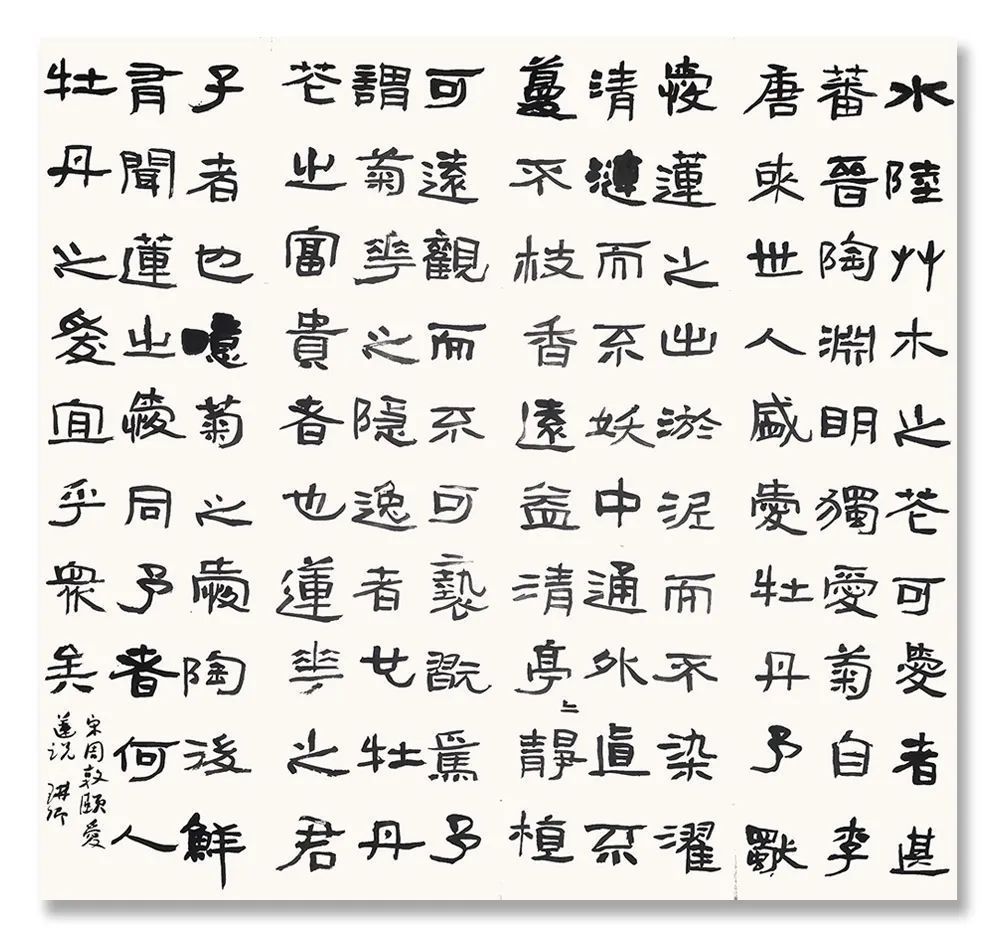 水陸艸木之花可愛者甚
蕃晉陶淵明獨愛菊自李
唐來世人盛愛牡丹予獨
愛蓮之出淤泥而不染濯
清漣而不妖中通外直不
蔓不枝香遠益清亭〻靜植
可遠觀而不可褻翫焉予
謂菊華之隱逸者也牡丹
花之富貴者也蓮華之君
子者也噫菊之愛陶後鮮
有聞蓮之愛同予者何人
牡丹之愛宜乎眾矣
宋周敦頤愛
蓮說